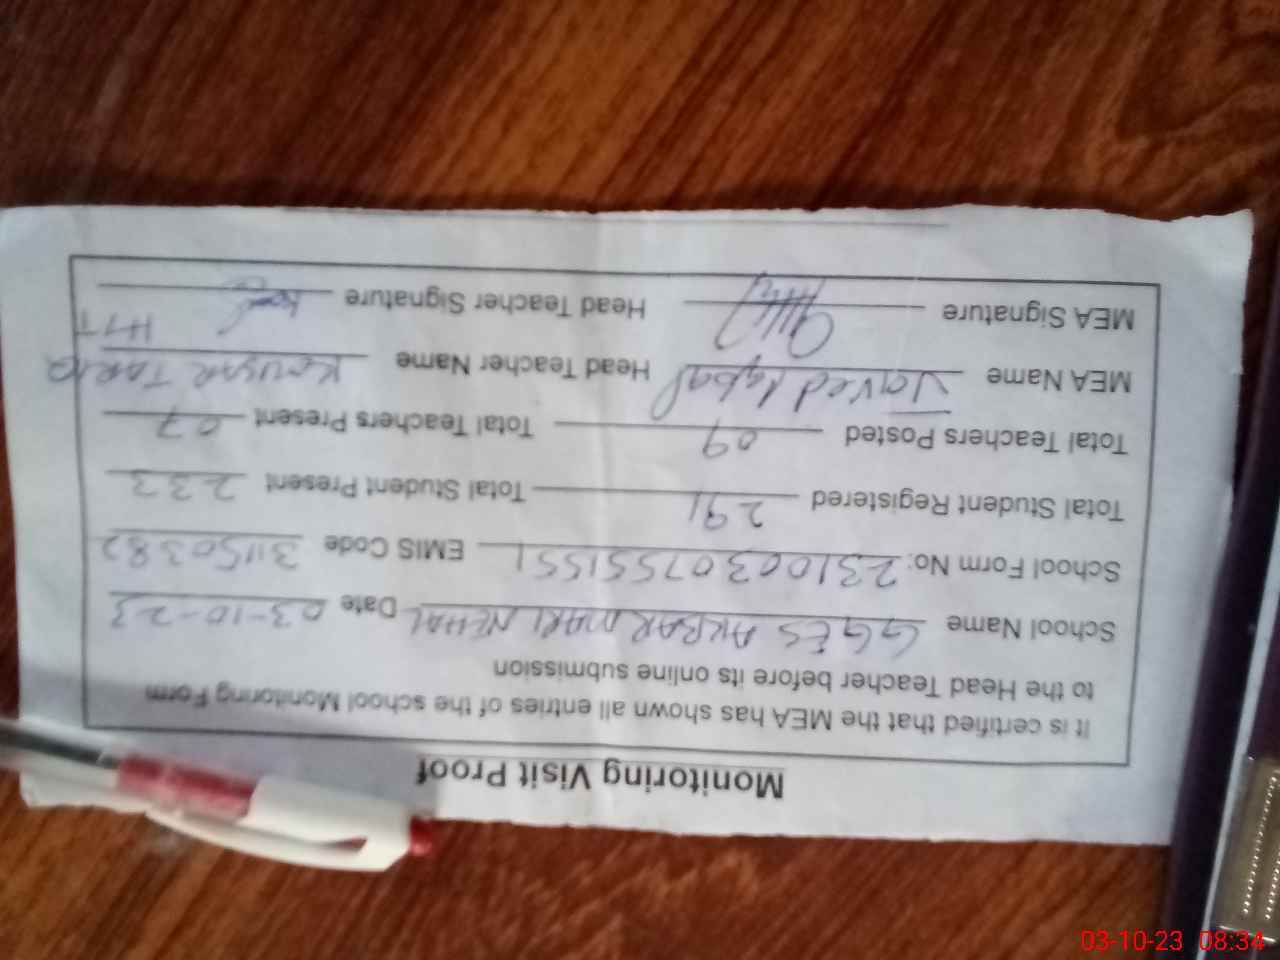 Monitoring Visit Proof
It is certified that the MEA has shown all entries of the school Monitoring Form
to the Head Teacher before its online submission
School Name GGES AKBAR MARI NEHAL Date 03-10-23
School Form No: 23100307551551 EMIS Code 31150382
Total Student Registered 291 Total Student Present 233
Total Teachers Posted 09 Total Teachers Present 07
MEA Name Javed Iqbal Head Teacher Name KOUSAR TARIQ
HTT
MEA Signature Head Teacher Signature
03-10-23 08:34